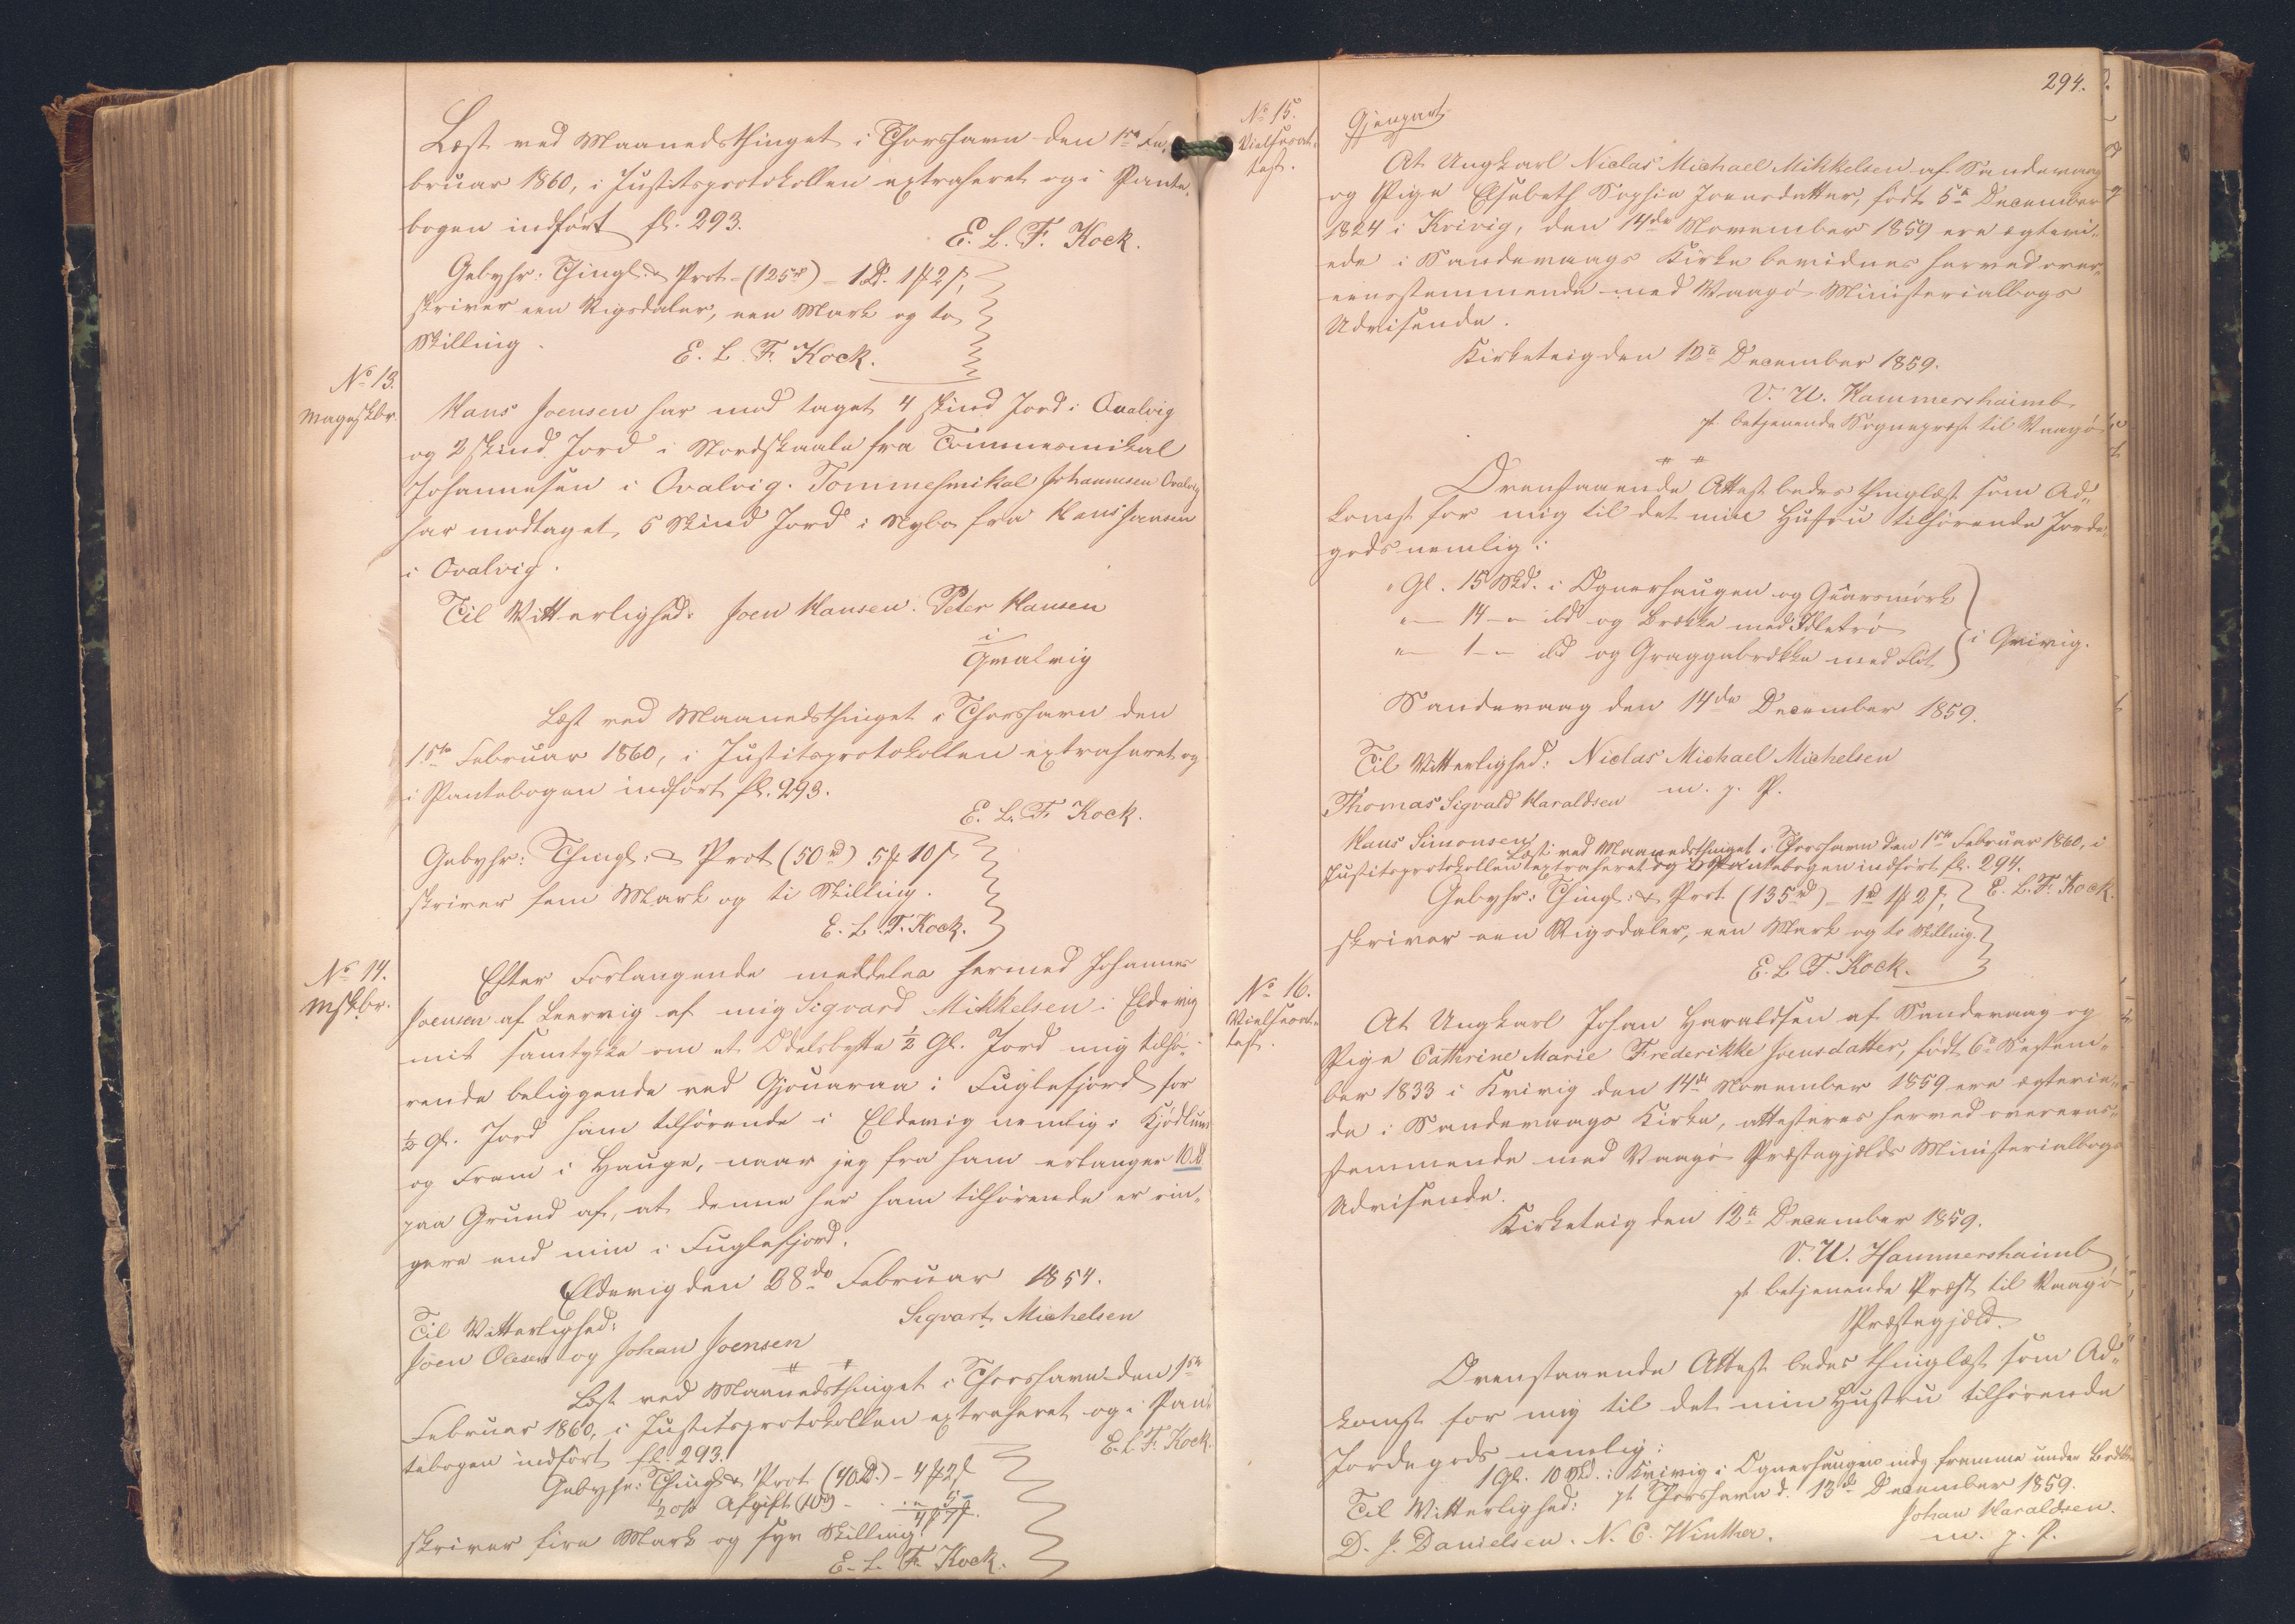 Læst ved Maanedsthinget i Thorshavn den 1ste Fe-
bruar 1860, i Justitsprotokollen extraheret og i Pante-
bogen indført fl. 293.
E. L. F. Kock.
Gebyhr: Thingl. & Prot. (125rd) - 1Rd. 1 # 2 s,
skriver een Rigsdaler, een Mark og to
Skilling.
E. L. F. Kock.
No 13.
Mageskbr.
Hans Joensen har mod taget 4 Skind Jord i Qvalvig
og 2 Skind Jord i Nordskaale fra Tommesmikal
Johannesen i Qvalvig. Tommesmikal Johannesen Qvalvig
har modtaget 5 Skind Jord i Nybo fra Hans Joensen
i Qvalvig.
Til Vitterlighed: Joen Hansen. Peter Hansen
i
Qvalvig
Læst ved Maanedsthinget i Thorshavn den
1ste Februar 1860, i Justitsprotokollen extraheret og
i Pantebogen indført fl. 293.
E. L. F. Kock.
Gebyhr: Thingl: & Prot (50rd) 5 # 10 s
skriver fem Mark og ti Skilling.
E. L. F. Kock.
No 14.
Mskbr.
Efter Forlangende meddeles hermed Johannes
Joensen af Leervig af mig Sigvard Mikkelsen i Eldevig
mit Samtykke om et Odelsbytte ½ Gl. Jord mig tilhø-
rende beliggende ved Gjouaraa i Fuglefjord for
½ Gl. Jord ham tilhørende i Eldevig nemlig: Kjødlum
og Frem i Hauge, naar jeg fra ham erlanger 10 Rd
paa Grund af, at denne her ham tilhørende er rin-
gere end min i Fuglefjord.
Eldevig den 28de Februar 1854.
Til Vitterlighed: Sigvart Michelsen
Joen Olesen og Johan Joensen
Læst ved Maanedsthinget i Thorshavn den 1ste
Februar 1860, i Justitsprotokollen extraheret og i Pan-
tebogen indført fl. 293.
E. L. F. Kock.
Gebyhr: Thingl & Prot (40Rd.) - 4 # 2 s
½ o/o Afgift (10rd) - . . " " 5 "
4 # 7 s.
skriver fire Mark og syv Skilling.
E. L. F. Kock.
294.
No 15.
Vielsesat-
test.
Gjenpart
At Ungkarl Niclas Michael Mikkelsen af Sandevaag
og Pige Elsebeth Sophie Joensdatter, født 5te December
1824 i Kvivig, den 14de November 1859 ere ægtevi-
ede i Sandevaags Kirke bevidnes herved over-
eensstemmende med Vaagø Ministerialbogs
Udvisende.
Kirketeig den 12te December 1859.
V. U. Hammershaimb
pt. betjenende Sognepræst til Vaagø
Ovenstaaende Attest bedes thinglæst som Ad-
komst for mig til det min Hustru tilhørende Jorde-
gods nemlig:
" Gl. 15 Skd. i Ognerhaugen og Gaarsmørk
" — 14 — " ibd og Brække med Idletrø
" — 1 — " ibd og Graggabrække med Fløt
i Qvivig.
Sandevaag den 14de December 1859.
Til Vitterlighed: Niclas Michael Michelsen
m. p. P.
Thomas Sigvald Haraldsen
Hans Simonsen
Læst ved Maanedsthinget i Thorshavn den 1ste Februar 1860, i
Justitsprotokollen extraheret og i Pantebogen indført fl. 294.
E. L. F. Kock.
Gebyhr: Thingl: & Prot (135rd) - 1rd 1 # 2 s,
skriver een Rigsdaler, een Mark og to Skilling.
E. L. F. Kock.
No 16.
Vielsesat-
test.
At Ungkarl Johan Haraldsen af Sandevaag og
Pige Cathrine Marie Frederikke Joensdatter, født 6te Septem-
ber 1833 i Kvivig den 14de November 1859 ere ægtevie-
de i Sandevaags Kirke, attesteres herved overeens-
stemmende med Vaagø Præstegjælds Ministerialbogs
Udvisende.
Kirketeig den 12te December 1859.
V. U. Hammershaimb
pt. betjenende Præst til Vaagø
Præstegjæld.
Ovenstaaende Attest bedes thinglæst som Ad-
komst for mig til det min Hustru tilhørende
Jordegods nemlig:
1 Gl. 10 Skd. i Kvivig i Ognerhaugen indg framme under Brække
Til Vitterlighed: pt. Thorshavn d. 13de December 1859.
Johan Haraldsen.
D. J. Danielsen. N. C. Winther. m. p. P.